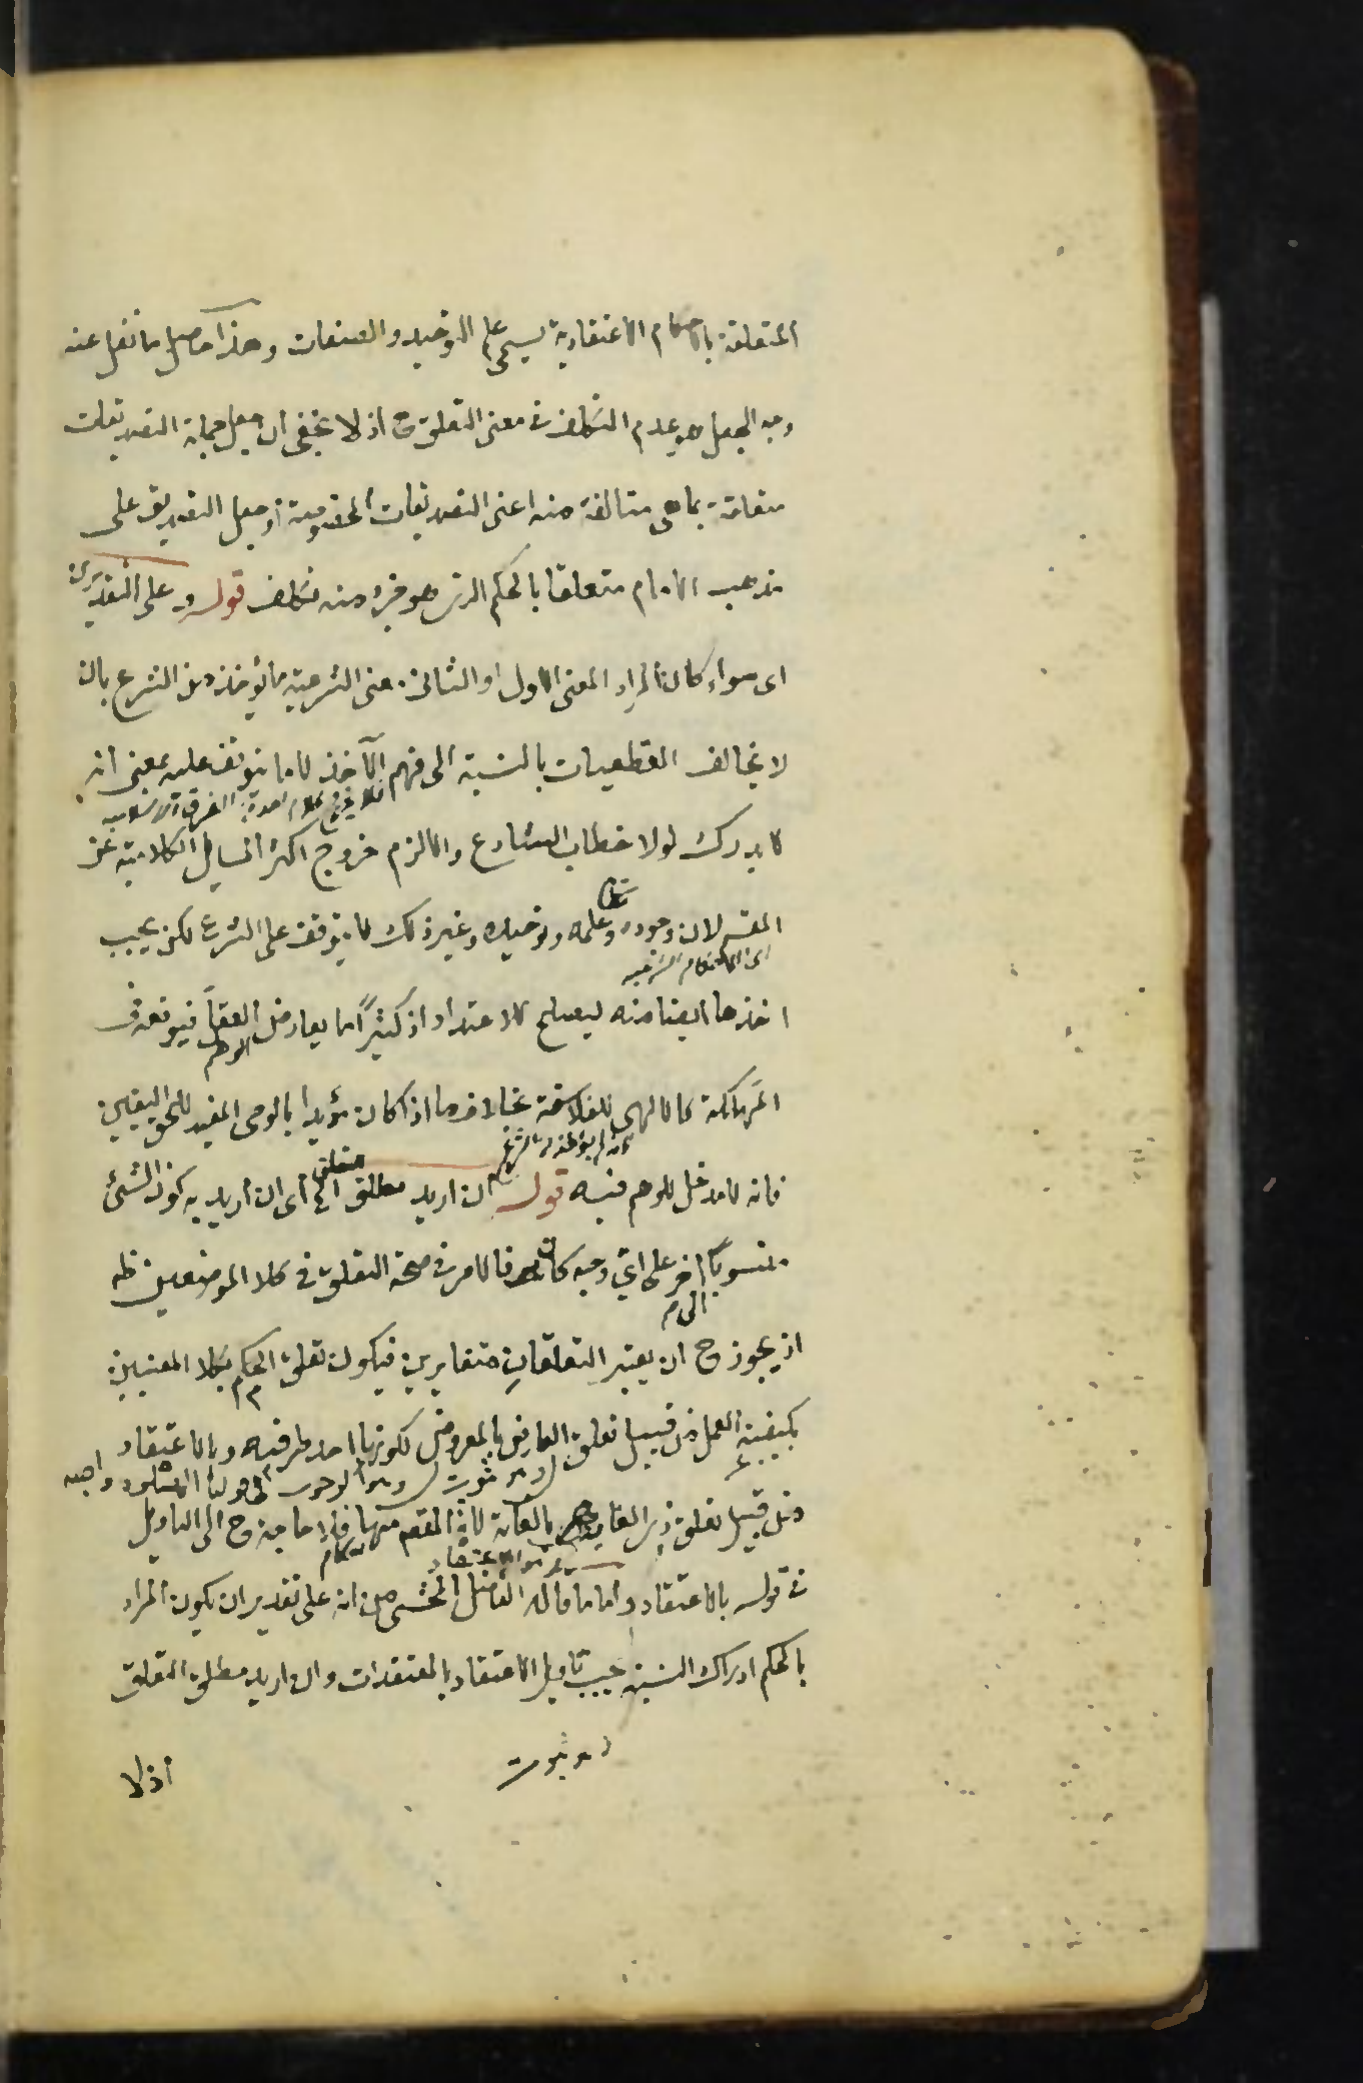 المتعلقة بالاحكام الاعتقادية يسمى علم التوحيد والصفات وهذا حاصل ما نقل عنه
وجه الجعل هو عدم التكلف فى معنى التعلق ح اذ لا يخفى ان جعل جملة التصديقات
متعلقة بما هى متالفة منه اعنى التصديقات المخصوصة او جعل التصديق على
مذهب الامام متعلقا بالحكم الذى هو جزء منه تكلف قوله وعلى التقديرين
اى سواء كان المراد المعنى الاول او الثانى معنى الشرعية ما يؤخذ من الشرع بان
لا يخالف القطعيات بالنسبة الى فهم الآخذ لا ما يتوقف عليه بمعنى انه
لا يدرك لولا خطاب الشارع والا لزم خروج اكثر المسايل الكلامية عن
المقسم لان وجوده تعالى وعلمه وتوحيده وغير ذلك لا يتوقف على الشرع لكن يجب
اى الاحكام الشرعية
اخذها ايضا منه ليصلح للاعتداد اذ كثيرا ما يعارض العقل فيوقعه فى
الوهم
المهلكة كالالهى للفلاسفة بخلاف ما اذا كان مؤيدا بالوحى المفيد للحق اليقين
فانه لا مدخل للوهم فيه قوله ان اريد مطلق التعلق اى ان اريد به كون الشئ
منسوبا الى آخر على اى وجه كان فالامر فى صحة التعلق فى كلا الموضعين ظ
اذ يجوز ح ان يعتبر التعلقان متغايرين فيكون تعلق الحكم بكلا المعنيين
بكيفية العمل من قبيل تعلق العارض بالمعروض لكونها احد طرفيه وبالاعتقاد
وهو الوجوب فى قولنا الصلوة واجبة
من قبيل تعلق ذى الغاية بالغاية لان المقصود منها فلا حاجة ح الى التاويل
هو الاعتقاد
فى قوله بالاعتقاد واما ما قاله الفاضل المحشى من انه على تقدير ان يكون المراد
بالحكم ادراك النسبة يجب تاويل الاعتقاد بالمعتقدات وان اريد مطلق التعلق
اذ لا